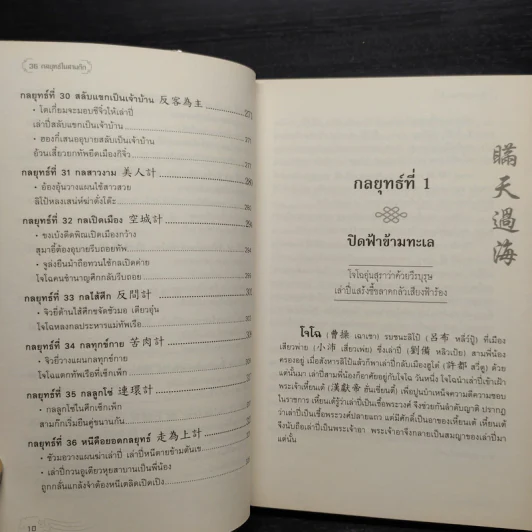 36 กลยุทธ์ในสามก๊ก
กลยุทธ์ที่ 30 สลับแขกเป็นเจ้าบ้าน 反客為主
• โตเกี๋ยมจะมอบชีจิ๋วให้เล่าปี่
เล่าปี่สลับแขกเป็นเจ้าบ้าน 271
• ฮองกี๋เสนออุบายสลับเป็นเจ้าบ้าน
อ้วนเสี้ยวยกทัพยึดเมืองกิจิ๋ว
กลยุทธ์ที่ 31 กลสาวงาม 美人計 280
• อ้องอุ้นวางแผนใช้สาวสวย
ลิโป้หลงเสน่ห์ฆ่าตั๋งโต๊ะ
กลยุทธ์ที่ 32 กลเปิดเมือง 空城計 290
• ขงเบ้งดีดพิณเปิดเมืองกว้าง
สุมาอี้ต้องอุบายรีบถอยทัพ
• จูล่งยืนม้าถือทวนใช้กลเปิดค่าย
โจโฉคนชำนาญศึกกลับรีบถอย
กลยุทธ์ที่ 33 กลไส้ศึก 反間計
• จิวยี่ต้านไส้ศึกขจัดชัวมอ เตียวอุ๋น
โจโฉหลงกลประหารแม่ทัพเรือ
กลยุทธ์ที่ 34 กลทุกข์กาย 苦肉計
• จิวยี่วางแผนกลทุกข์กาย
โจโฉแตกทัพเรือที่เซ็กเพ็ก
กลยุทธ์ที่ 35 กลลูกโซ่ 連環計
• กลลูกโซ่ในศึกเซ็กเพ็ก
สามก๊กเริ่มยืนคู่ขนานกัน
กลยุทธ์ที่ 36 หนีคือยอดกลยุทธ์ 走為上計
• ชัวมอวางแผนฆ่าเล่าปี่ เล่าปี่หนีตายข้ามตันเข
• เล่าปี่กวนอูเตียวหุยสาบานเป็นพี่น้อง
ถูกกลั่นแกล้งจำต้องหนีเตลิดเปิดเปิง
10
瞞天過海
กลยุทธ์ที่ 1
ปิดฟ้าข้ามทะเล
โจโฉอุ่นสุราว่าด้วยวีรบุรุษ
เล่าปี่แสร้งขี้ขลาดกลัวเสียงฟ้าร้อง
โจโฉ (曹操 เฉาเชา) รบชนะลิโป้ (呂布 หลี่ว์ปู้) ที่เมือง
เสียวพ่าย (小沛 เสี่ยวเพ่ย) ซึ่งเล่าปี่ (劉備 หลิวเป้ย) สามพี่น้อง
ครองอยู่ เมื่อสังหารลิโป้แล้วก็พาเล่าปี่กลับเมืองฮูโต๋ (許都 สวี่ตู) ด้วย
แต่นั้นมา เล่าปี่สามพี่น้องก็อาศัยอยู่กับโจโฉ วันหนึ่ง โจโฉนำเล่าปี่เข้าเฝ้า
พระเจ้าเหี้ยนเต้ (漢獻帝 ฮั่นเซี่ยนตี้) เพื่อปูนบำเหน็จความดีความชอบ
ในราชการ เหี้ยนเต้รู้ว่าเล่าปี่เป็นเชื้อพระวงศ์ จึงช่วยกันลำดับญาติ ปรากฏ
ว่าเล่าปี่เป็นเชื้อพระวงศ์ปลายแถว แต่มีศักดิ์เป็นอาของเหี้ยนเต้ เหี้ยนเต้
จึงนับถือเล่าปี่เป็นพระเจ้าอา พระเจ้าอาจึงกลายเป็นสมญาของเล่าปี่มา
แต่นั้น